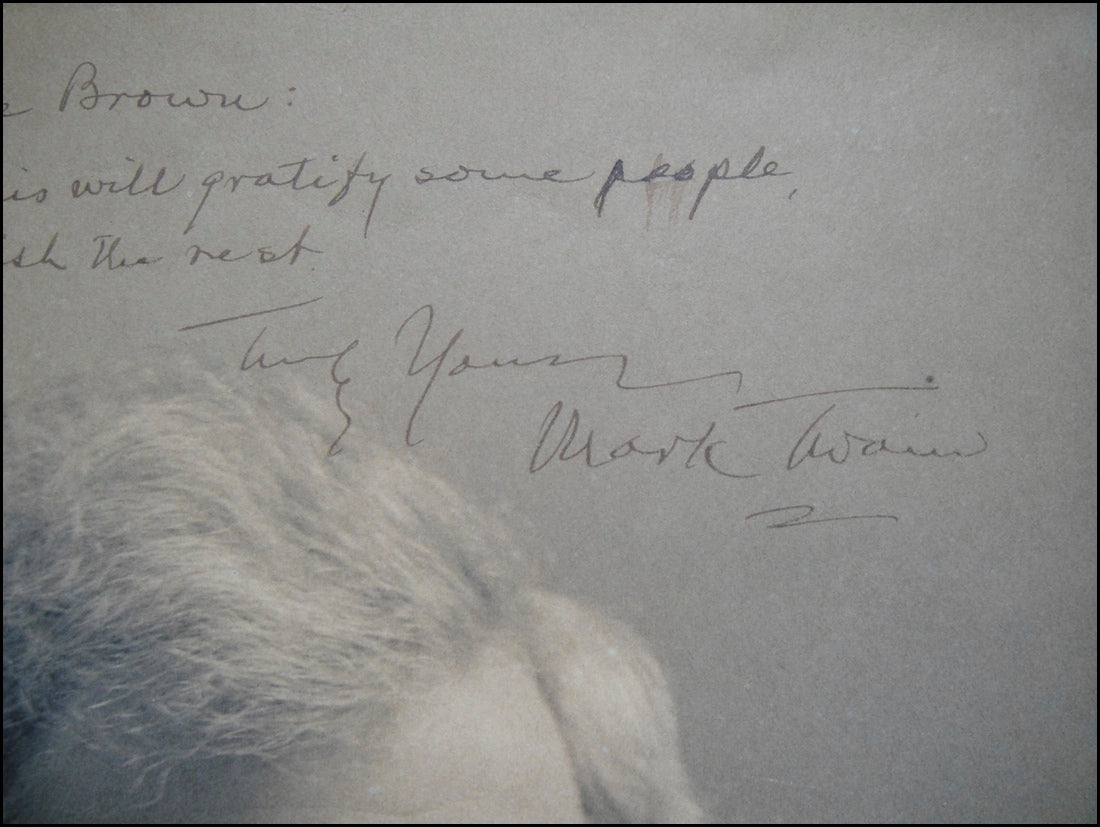 e Brown:
is will gratify some people,
sh the rest
Truly Yours
Mark Twain